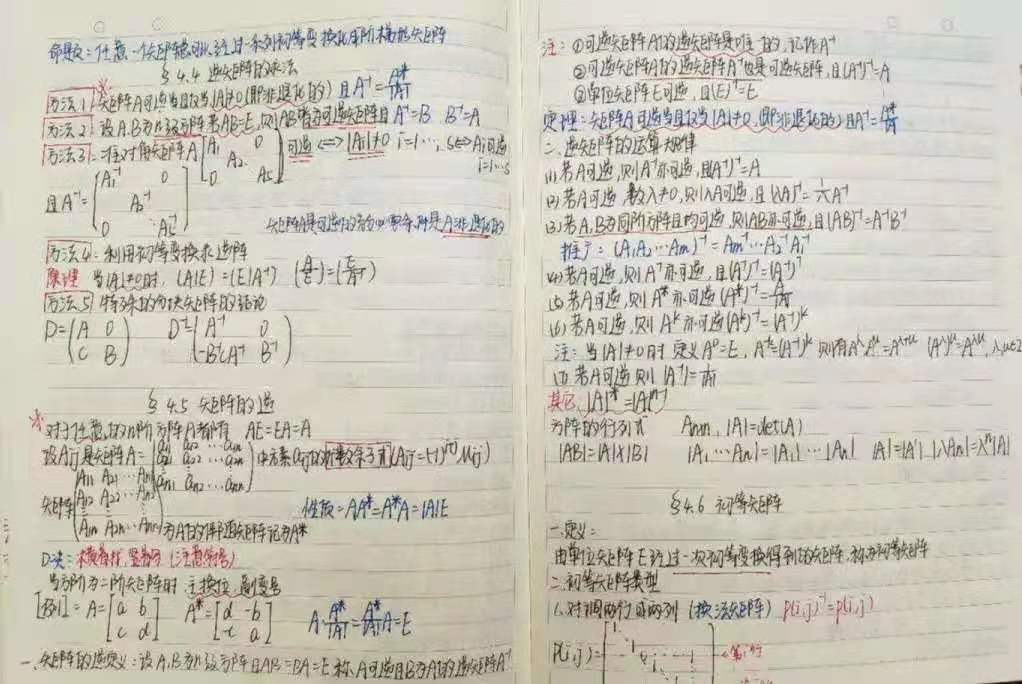 命题：任意一个矩阵总可以经过一系列初等变换化为阶梯形矩阵
§4.4 逆矩阵的求法
方法1：矩阵A可逆当且仅当|A|≠0(即非退化的)且A⁻¹=A*/|A|
方法2：设A.B为n级方阵若AB=E，则AB皆为可逆矩阵且A⁻¹=B B⁻¹=A
方法3：准对角矩阵A [A₁ 0 A₂. 0 As] 可逆⟺|Ai|≠0 i=1…, s⟺Ai可逆
i=1…s
且A⁻¹=[A₁⁻¹ 0 A₂⁻¹ 0 As⁻¹]
矩阵A是可逆的充分必要条件是A非退化的
方法4：利用初等变换求逆阵
原理 当|A|≠0时，(A|E)=(E|A⁻¹) (A/E)=(E/A⁻¹)
方法5 特殊的分块矩阵的结论
D=(A 0 C B) D⁻¹=(A⁻¹ 0 -B⁻¹CA⁻¹ B⁻¹)
§4.5 矩阵的逆
※ 对于任意的n阶方阵A都有 AE=EA=A
设Aij是矩阵A=[a₁₁ a₁₂ … a₁ₙ a₂₁ a₂₂ … a₂ₙ aₙ₁ aₙ₂ … aₙₙ]中元素aij的代数余子式(Aij=(-1)^(i+j) Mij)
矩阵(A₁₁ A₂₁ … Aₙ₁ A₁₂ A₂₂ … Aₙ₂ A₁ₙ A₂ₙ … Aₙₙ)为A的伴随矩阵记为A*
性质=AA*=A*A=|A|E
口决：横着求，竖着写(注意符号)
当方阵为二阶矩阵时 主换位 副变号
[例1]=A=[a b c d] A*=[d -b -c a] A·A*/|A|=A*/|A|A=E
一.矩阵的逆定义：设A,B为n级方阵且AB=BA=E称A可逆且B为A的逆矩阵A⁻¹
注：①可逆矩阵A的逆矩阵是唯一的，记作A⁻¹
②可逆矩阵A的逆矩阵A⁻¹也是可逆矩阵，且(A⁻¹)⁻¹=A
③单位矩阵E可逆，且(E)⁻¹=E
定理：矩阵A可逆当且仅当|A|≠0，(即非退化的)且A⁻¹=A*/|A|
二、逆矩阵的运算规律
(1)若A可逆，则A⁻¹亦可逆，且(A⁻¹)⁻¹=A
(2)若A可逆，数λ≠0，则λA可逆，且(λA)⁻¹=1/λ A⁻¹
(3)若A,B为同阶方阵且均可逆，则AB亦可逆，且(AB)⁻¹=A⁻¹B⁻¹
推广：(A₁A₂…Am)⁻¹=Am⁻¹…A₂⁻¹A₁⁻¹
(4)若A可逆，则Aᵀ亦可逆，且(Aᵀ)⁻¹=(A⁻¹)ᵀ
(5)若A可逆，则A*亦可逆(A*)⁻¹=A/|A|
(6)若A可逆，则Aᵏ亦可逆(Aᵏ)⁻¹=(A⁻¹)ᵏ
注：当|A|≠0时 定义A⁰=E，A⁻ᵏ=(A⁻¹)ᵏ 则有A^λA^μ=A^(λ+μ) (A^λ)^μ=A^(λμ), λ,μ∈Z
(7)若A可逆则|A⁻¹|=1/|A|
其它：|A|*=|A|ⁿ⁻¹
方阵的行列式 Aₙₓₙ, |A|=det(A)
|AB|=|A|×|B| |A₁…Am|=|A₁|…|Am| |A|=|Aᵀ| |λAn|=λⁿ|A|
§4.6 初等矩阵
一.定义：
由单位矩阵E经过一次初等变换得到的矩阵，称为初等矩阵
二.初等矩阵类型
1.对调两行或两列(换法矩阵) P(i,j)⁻¹=P(i,j)
P(i,j)=
←第i行